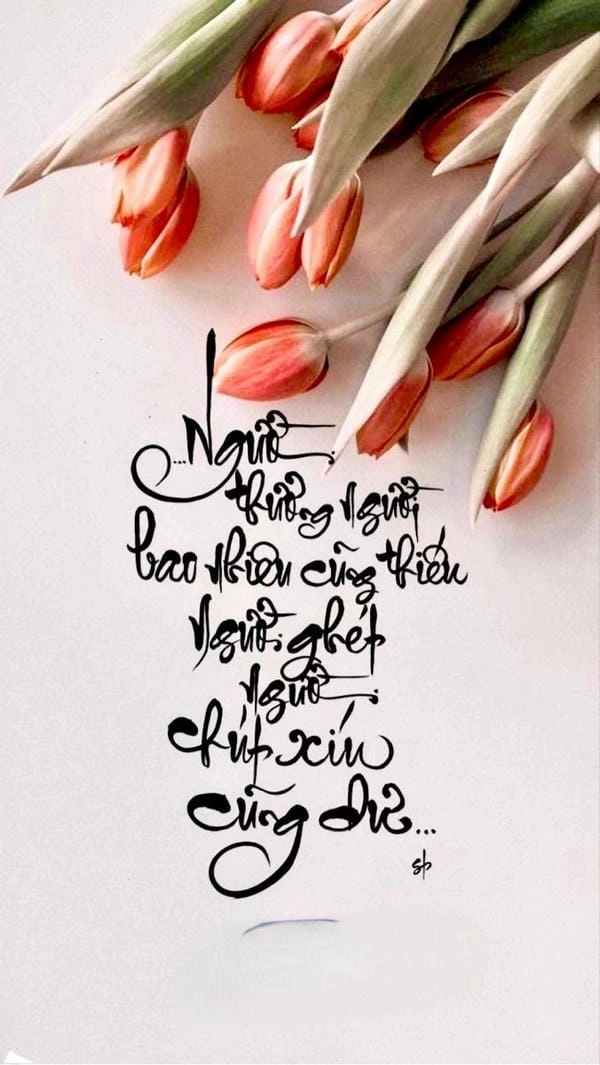 ...Người
thương người
bao nhiêu cũng thiếu
Người ghét
người
chút xíu
cũng dư...